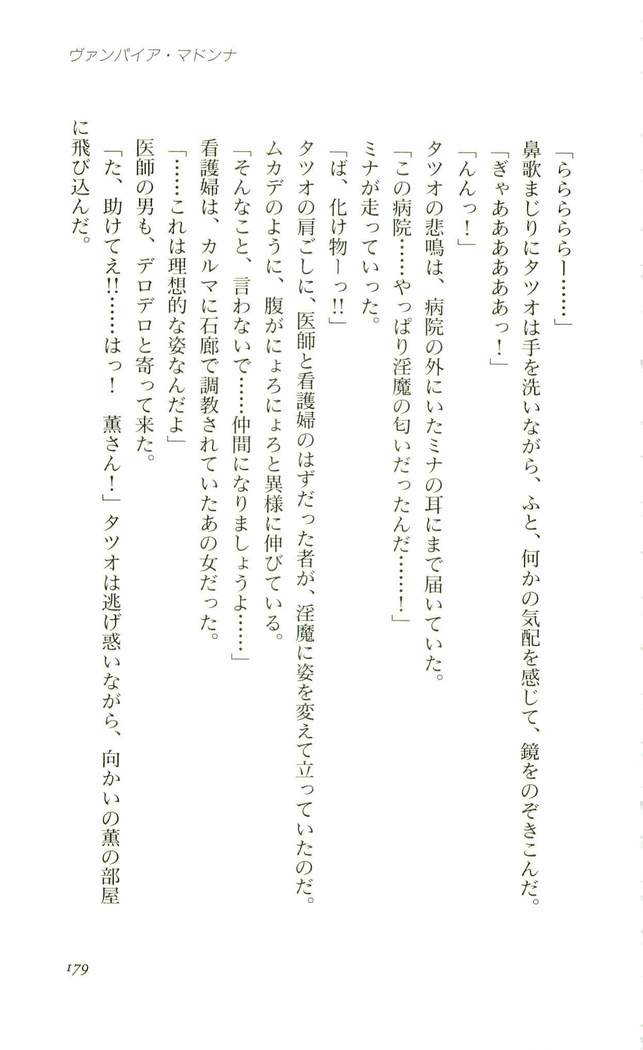 ヴァンパイア・マドンナ
「ららららら―……」
鼻歌まじりにタツオは手を洗いながら、ふと、何かの気配を感じて、鏡をのぞきこんだ。
「ぎゃああああああっ！」
「んんっ！」
タツオの悲鳴は、病院の外にいたミナの耳にまで届いていた。
「この病院……やっぱり淫魔の匂いだったんだ……！」
ミナが走っていった。
「ば、化け物ーっ!!」
タツオの肩ごしに、医師と看護婦のはずだった者が、淫魔に姿を変えて立っていたのだ。
ムカデのように、腹がにょろにょろと異様に伸びている。
「そんなこと、言わないで……仲間になりましょうよ……」
看護婦は、カルマに石廊で調教されていたあの女だった。
「……これは理想的な姿なんだよ」
医師の男も、デロデロと寄って来た。
「た、助けてえ!!……はっ！　薫さん！」タツオは逃げ惑いながら、向かいの薫の部屋
に飛び込んだ。
179